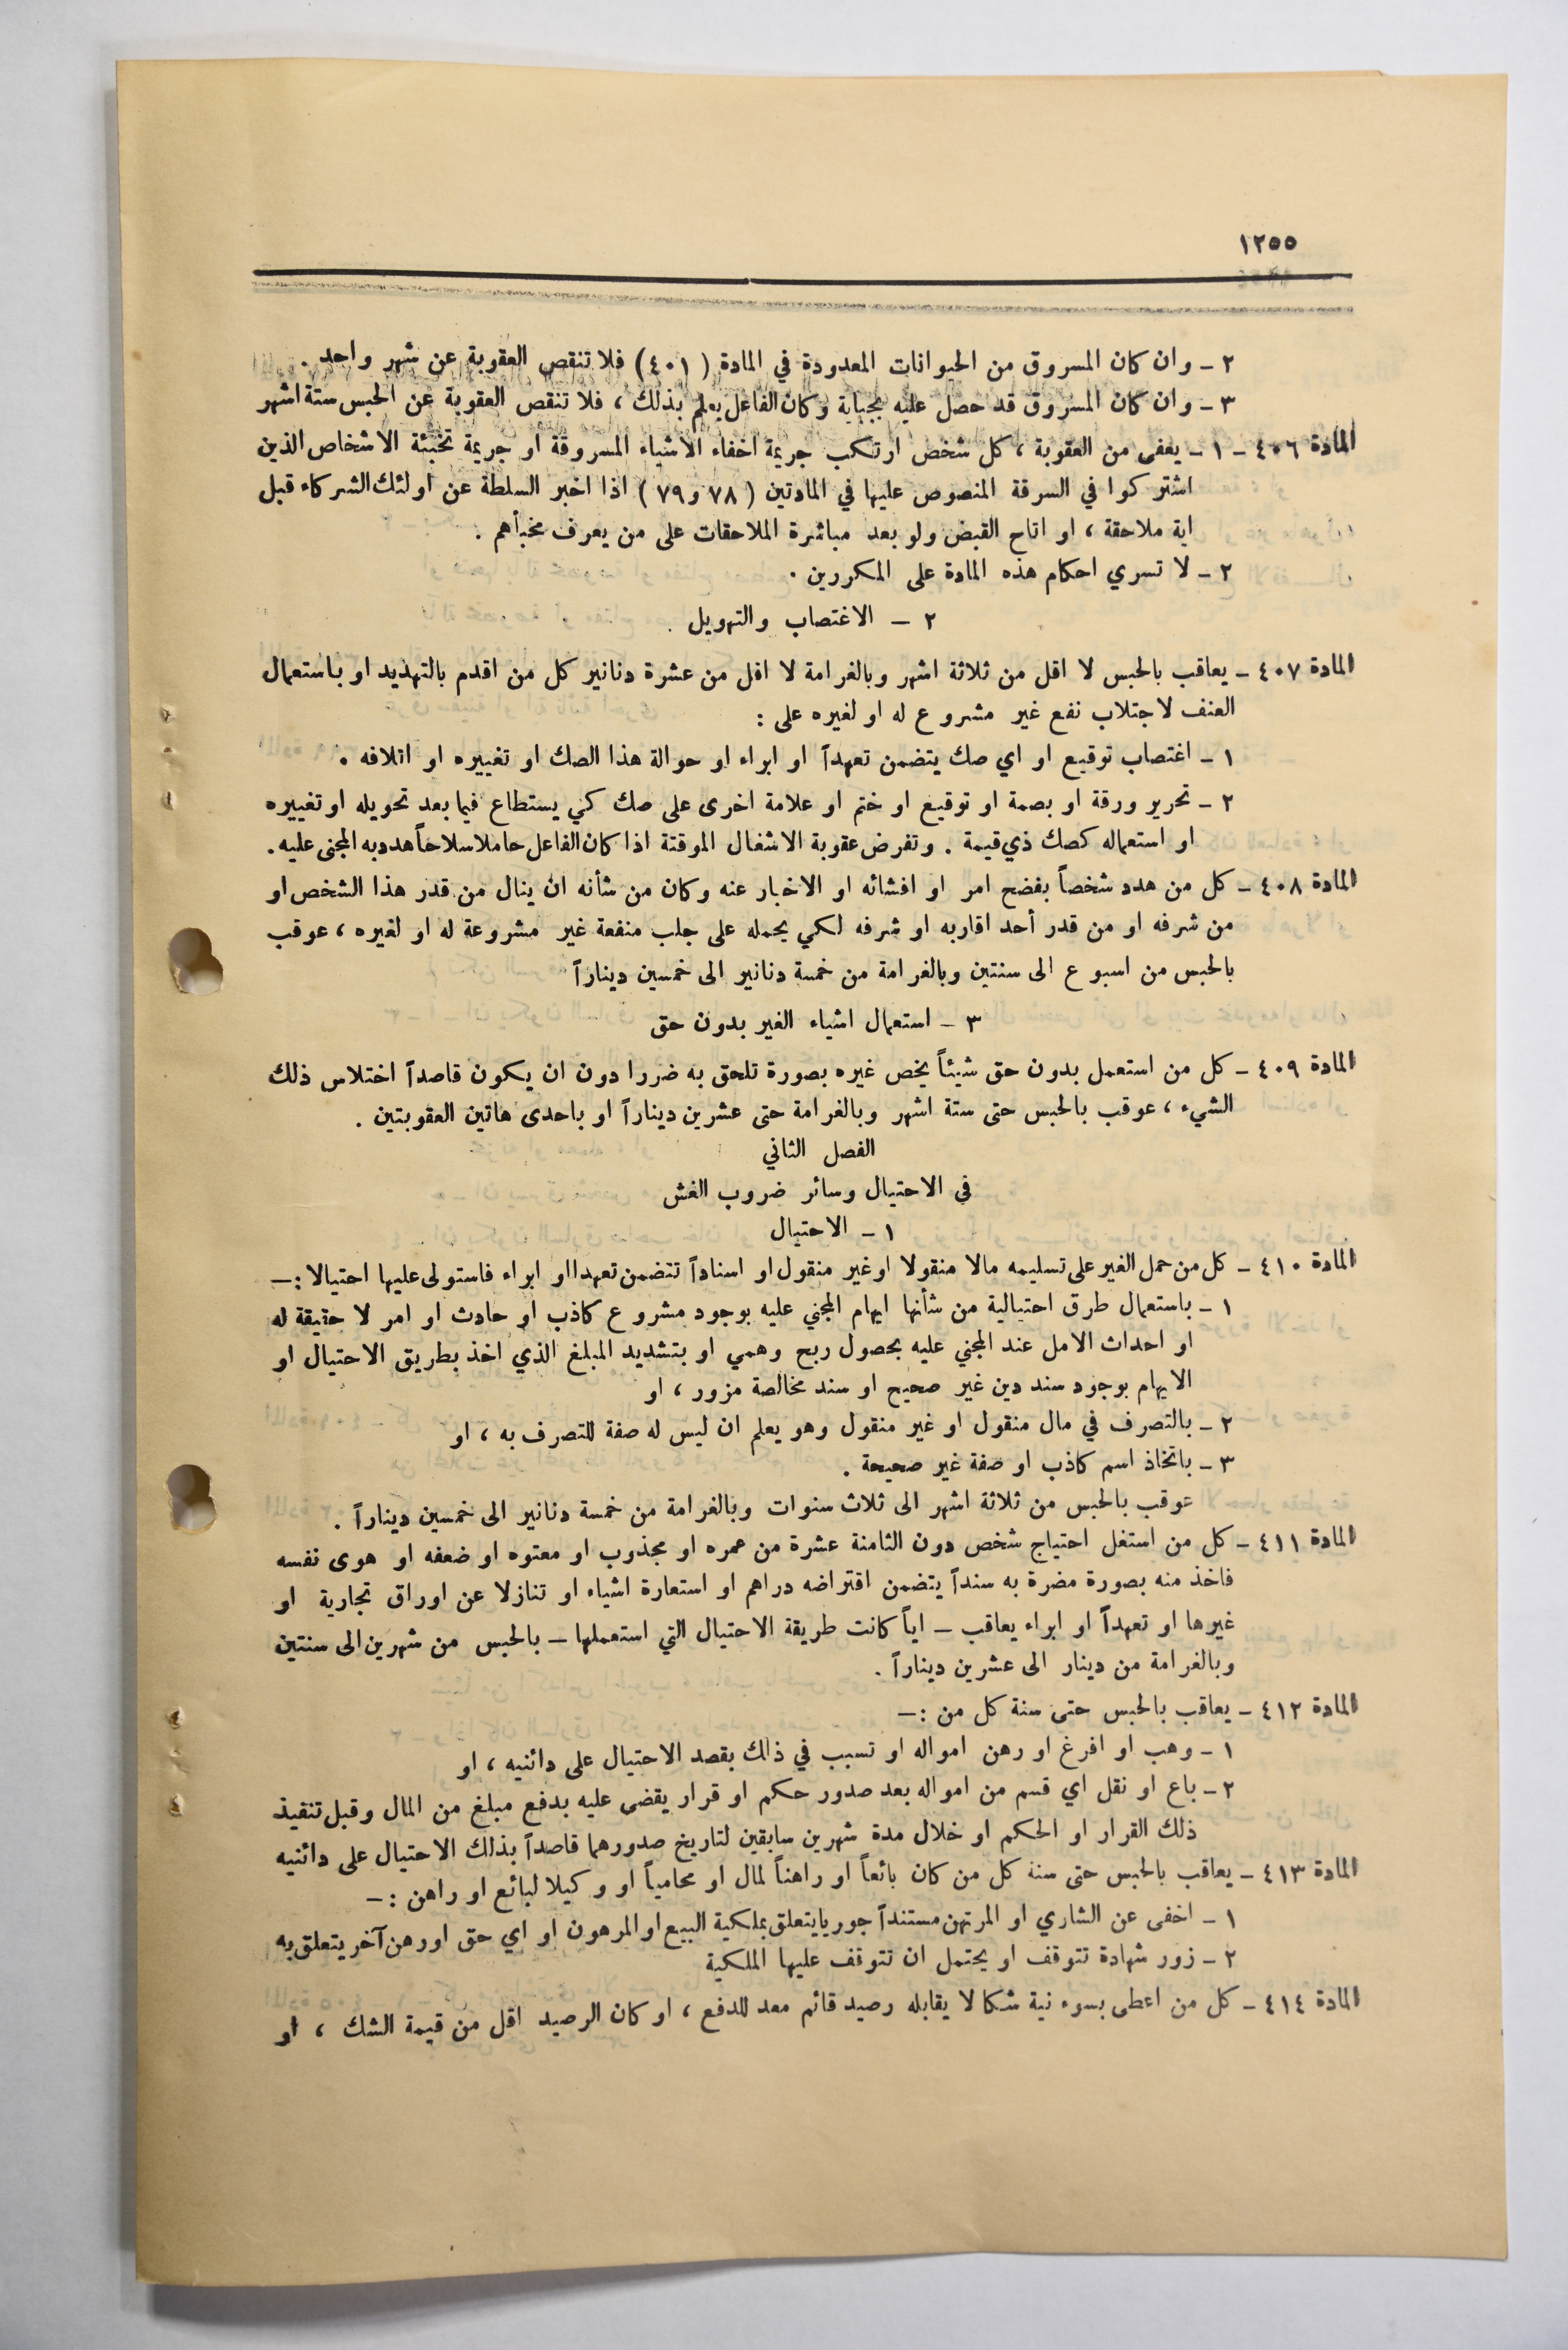 ١٢٥٥
٢ - وان كان المسروق من الحيوانات المعدودة في المادة ( ٤٠١ ) فلا تنقص العقوبة عن شهر واحد .
٣ - وان كان المسروق قد حصل عليه بجباية وكان الفاعل يعلم بذلك ، فلا تنقص العقوبة عن الحبس ستة اشهر
المادة ٤٠٦ - ١ - يعفى من العقوبة ، كل شخص ارتكب جريمة اخفاء الاشياء المسروقة او جريمة تخبئة الاشخاص الذين
اشتركوا في السرقة المنصوص عليها في المادتين ( ٧٨ و ٧٩ ) اذا اخبر السلطة عن اولئك الشركاء قبل
اية ملاحقة ، او اتاح القبض ولو بعد مباشرة الملاحقات على من يعرف مخبأهم .
٢ - لا تسري احكام هذه المادة على المكررين .
٢ - الاغتصاب والتهويل
المادة ٤٠٧ - يعاقب بالحبس لا اقل من ثلاثة اشهر وبالغرامة لا اقل من عشرة دنانير كل من اقدم بالتهديد او باستعمال
العنف لاجتلاب نفع غير مشروع له او لغيره على :
١ - اغتصاب توقيع او اي صك يتضمن تعهداً او ابراء او حوالة هذا الصك او تغييره او اتلافه .
٢ - تحرير ورقة او بصمة او توقيع او ختم او علامة اخرى على صك كي يستطاع فيما بعد تحويله او تغييره
او استعماله كصك ذي قيمة . وتفرض عقوبة الاشغال الموقتة اذا كان الفاعل حاملا سلاحاً هدد به المجنى عليه .
المادة ٤٠٨ - كل من هدد شخصاً بفضح امر او افشائه او الاخبار عنه وكان من شأنه ان ينال من قدر هذا الشخص او
من شرفه او من قدر أحد اقاربه او شرفه لكي يحمله على جلب منفعة غير مشروعة له او لغيره ، عوقب
بالحبس من اسبوع الى سنتين وبالغرامة من خمسة دنانير الى خمسين ديناراً
٣ - استعمال اشياء الغير بدون حق
المادة ٤٠٩ - كل من استعمل بدون حق شيئاً يخص غيره بصورة تلحق به ضررا دون ان يكون قاصداً اختلاس ذلك
الشيء ، عوقب بالحبس حتى ستة اشهر وبالغرامة حتى عشرين ديناراً او باحدى هاتين العقوبتين .
الفصل الثاني
في الاحتيال وسائر ضروب الغش
١ - الاحتيال
المادة ٤١٠ - كل من حمل الغير على تسليمه مالا منقولا او غير منقول او اسناداً تتضمن تعهدا او ابراء فاستولى عليها احتيالا : -
١ - باستعمال طرق احتيالية من شأنها ايهام المجني عليه بوجود مشروع كاذب او حادث او امر لا حقيقة له
او احداث الامل عند المجني عليه بحصول ربح وهمي او بتشديد المبلغ الذي اخذ بطريق الاحتيال او
الايهام بوجود سند دين غير صحيح او سند مخالصة مزور ، او
٢ - بالتصرف في مال منقول او غير منقول وهو يعلم ان ليس له صفة للتصرف به ، او
٣ - باتخاذ اسم كاذب او صفة غير صحيحة .
عوقب بالحبس من ثلاثة اشهر الى ثلاث سنوات وبالغرامة من خمسة دنانير الى خمسين ديناراً .
المادة ٤١١ - كل من استغل احتياج شخص دون الثامنة عشرة من عمره او مجذوب او معتوه او ضعفه او هوى نفسه
فاخذ منه بصورة مضرة به سنداً يتضمن اقتراضه دراهم او استعارة اشياء او تنازلا عن اوراق تجارية او
غيرها او تعهداً او ابراء يعاقب - اياً كانت طريقة الاحتيال التي استعملها - بالحبس من شهرين الى سنتين
وبالغرامة من دينار الى عشرين ديناراً .
المادة ٤١٢ - يعاقب بالحبس حتى سنة كل من : -
١ - وهب او افرغ او رهن امواله او تسبب في ذلك بقصد الاحتيال على دائنيه ، او
٢ - باع او نقل اي قسم من امواله بعد صدور حكم او قرار يقضى عليه بدفع مبلغ من المال وقبل تنفيذ
ذلك القرار او الحكم او خلال مدة شهرين سابقين لتاريخ صدورهما قاصداً بذلك الاحتيال على دائنيه
المادة ٤١٣ - يعاقب بالحبس حتى سنة كل من كان بائعاً او راهناً لمال او محامياً او وكيلا لبائع او راهن : -
١ - اخفى عن الشاري او المرتهن مستنداً جوريا يتعلق بملكية البيع او المرهون او اي حق او رهن آخر يتعلق به
٢ - زور شهادة تتوقف او يحتمل ان تتوقف عليها الملكية
المادة ٤١٤ - كل من اعطى بسوء نية شكا لا يقابله رصيد قائم معد للدفع ، او كان الرصيد اقل من قيمة الشك ، او